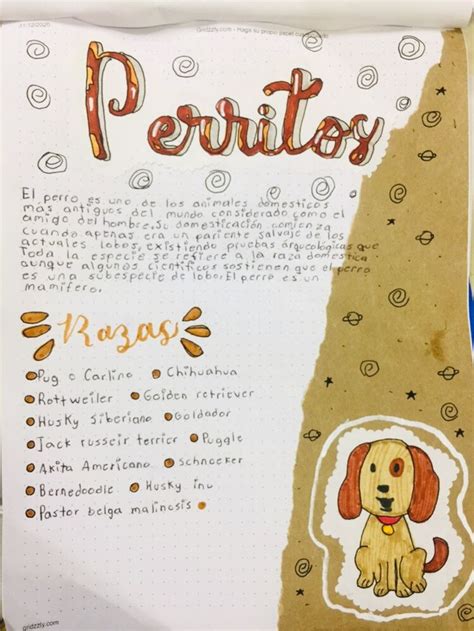 Gridzzly.com - Haga su propio papel cuadriculado
Perritos
El perro es uno de los animales domesticos
más antiguos del mundo considerado como el
amigo del hombre.Su domesticación comienza
cuando apenas era un pariente salvaje de los
actuales lobos, existiendo pruebas arqueológicas que
toda la especie se refiere a la raza domestica
aunque algunos científicos sostienen que el perro
es una subespecie de lobo.El perro es un
mamífero.
Razas
Pug o Carlino Chihuahua
Rottweiler Golden retriever
Husky Siberiano Goldador
Jack russeir terrier Puggle
Akita Americano Schnocker
Bernedoodle Husky inu
Pastor belga malinosis
gridzzly.com